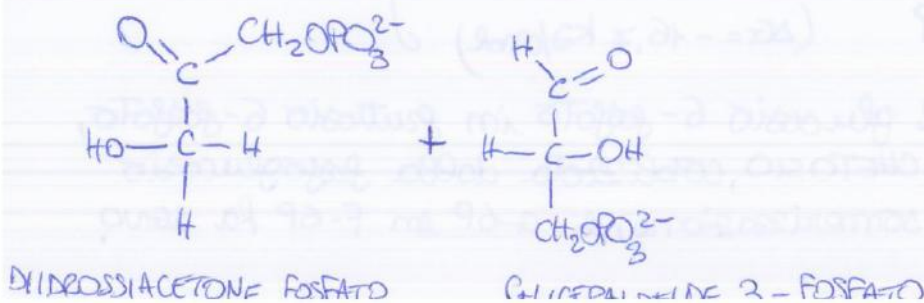 O CH₂OPO₃²⁻ H O
C C
HO—C—H + H—C—OH
H CH₂OPO₃²⁻
DIIDROSSIACETONE FOSFATO GLICERALDEIDE 3-FOSFATO